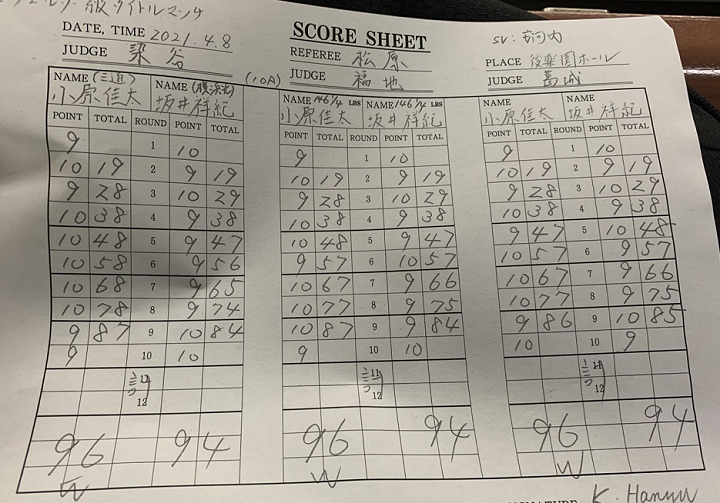 級タイトルマッチ
DATE, TIME 2021.4.8
SCORE SHEET
SV:
JUDGE 染谷
REFEREE 松原
JUDGE 福地
PLACE 後楽園ホール
JUDGE 葛城
(10R)
NAME (三迫) 小原佳太 NAME (横浜光) 坂井祥紀
POINT TOTAL ROUND POINT TOTAL
9 1 10
10 19 2 9 19
9 28 3 10 29
10 38 4 9 38
10 48 5 9 47
10 58 6 9 56
10 68 7 9 65
10 78 8 9 74
9 87 9 10 84
9 10 10
11
12
96 94
W
NAME 146¼ LBS 小原佳太 NAME 146¼ LBS 坂井祥紀
POINT TOTAL ROUND POINT TOTAL
9 1 10
10 19 2 9 19
9 28 3 10 29
10 38 4 9 38
10 48 5 9 47
9 57 6 10 57
10 67 7 9 66
10 77 8 9 75
10 87 9 9 84
9 10 10
11
12
96 94
W
NAME 小原佳太 NAME 坂井祥紀
POINT TOTAL ROUND POINT TOTAL
9 1 10
10 19 2 9 19
9 28 3 10 29
10 38 4 9 38
9 47 5 10 48
10 57 6 9 57
10 67 7 9 66
10 77 8 9 75
9 86 9 10 85
10 10 9
11
12
96 94
W
K.